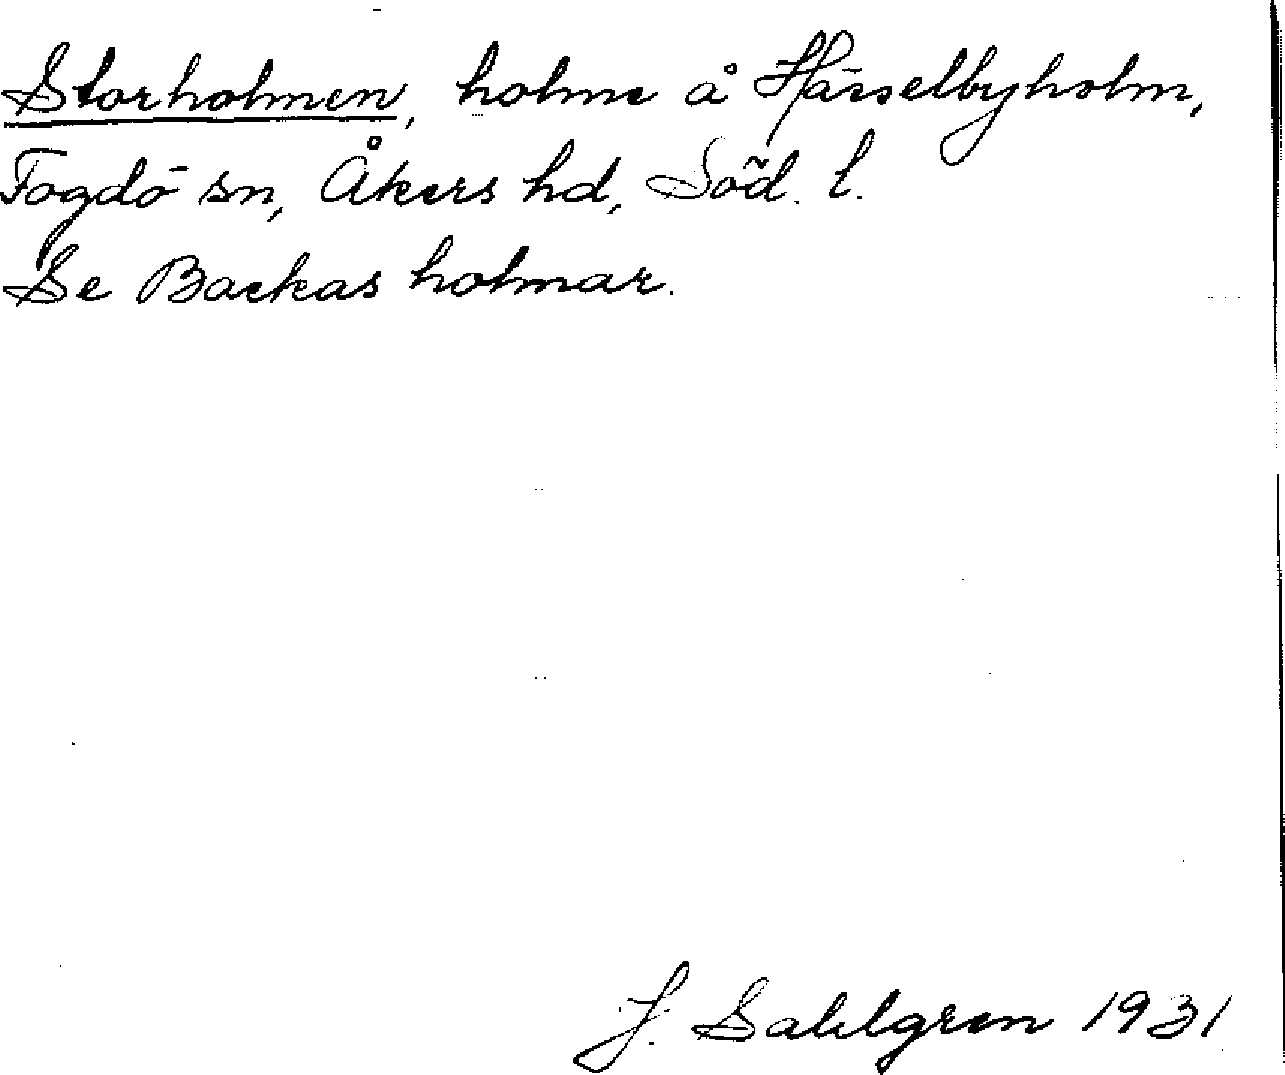 Storholmen, holme å Hässelbyholm,
Fogdö sn, Åkers hd, Söd. l.
Se Backas holmar.
J. Sahlgren 1931